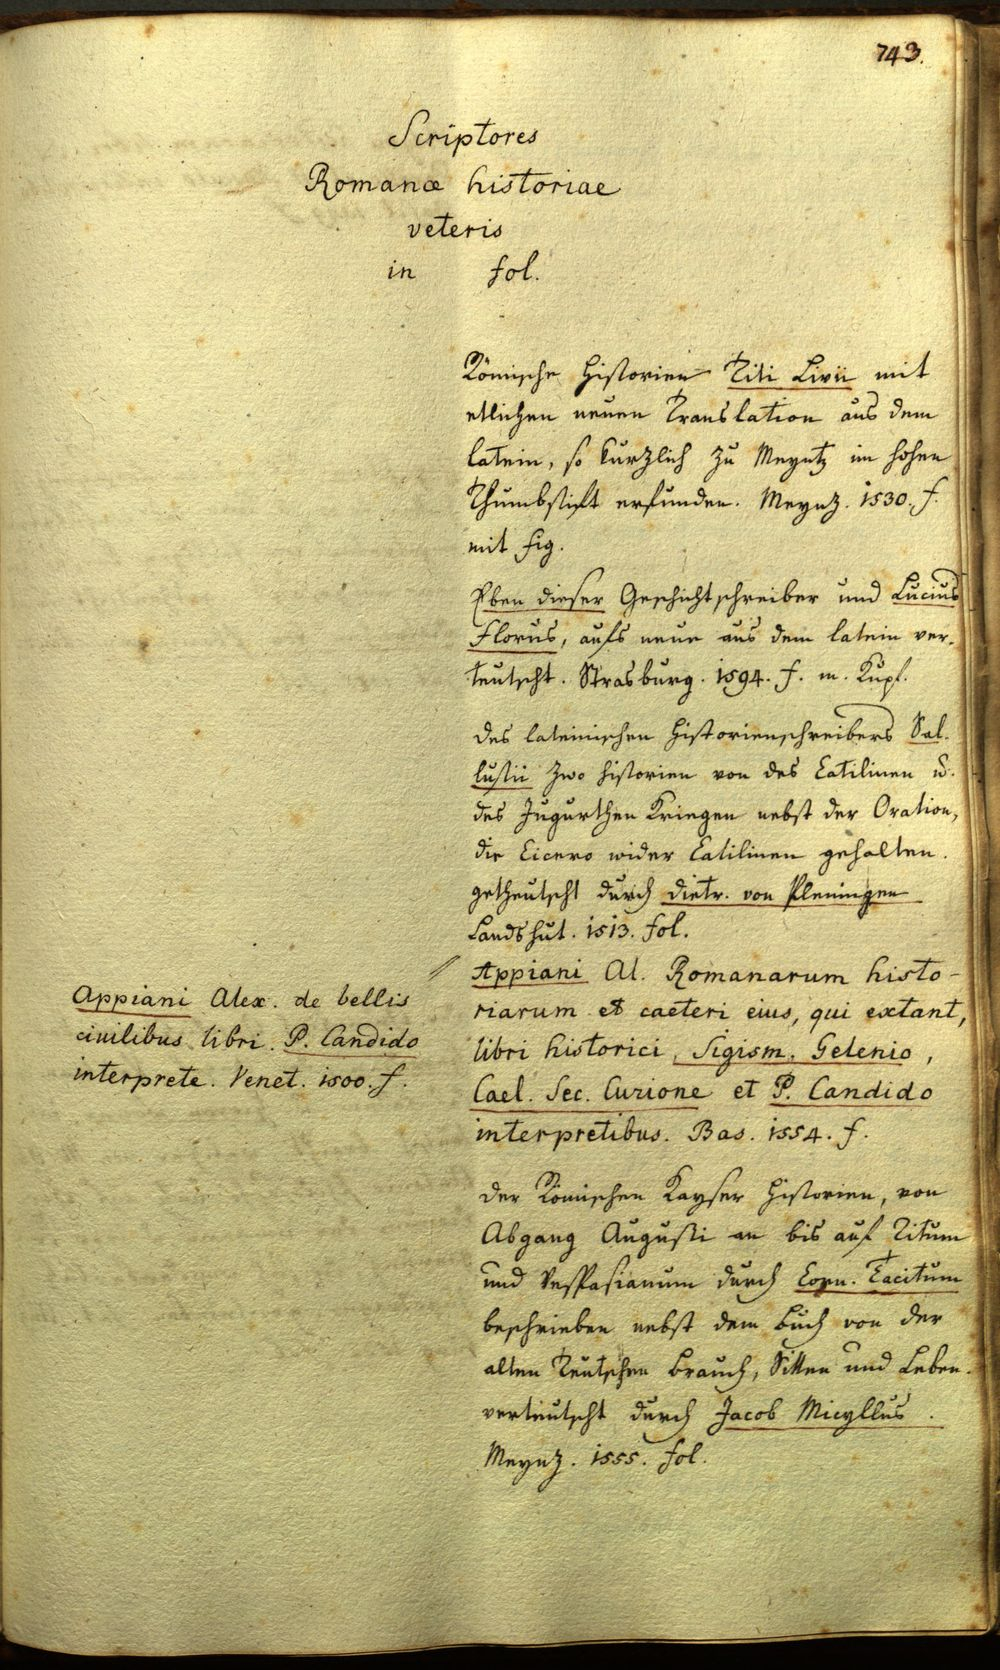 743.
Scriptores
Romanæ historiae
veteris
in fol.
Römische Historien Titi Livii mit
etlichen neuen Translation aus dem
latein, so kurzlich zu Meyntz im hohen
Thumbstift erfunden. Meynz. 1530. f.
mit fig.
Eben dieser Geschichtschreiber und Lucius
Florus, aufs neue aus dem latein ver-
teutscht. Strasburg. 1594. f. m. Kupf.
des lateinischen Historienschreibers Sal-
lustii zwo historien von des Catilinen u.
des Jugurthen Kriegen nebst der Oration,
die Cicero wider Catilinen gehalten.
getheutscht durch Dietr. von Pleningen
Landshut. 1513. fol.
Appiani Alex. de bellis
civilibus libri. P. Candido
interprete. Venet. 1500. f.
Appiani Al. Romanarum histo-
riarum et caeteri eius, qui extant,
libri historici, Sigism. Gelenio,
Cael. Sec. Curione et P. Candido
interpretibus. Bas. 1554. f.
der Römischen Kayser Historien, von
Abgang Augusti an bis auf Titum
und Vespasianum durch Corn. Tacitum
beschrieben nebst dem buch von der
alten Teutschen brauch, Sitten und Leben.
verteutscht durch Jacob Micyllus.
Meynz. 1555. fol.